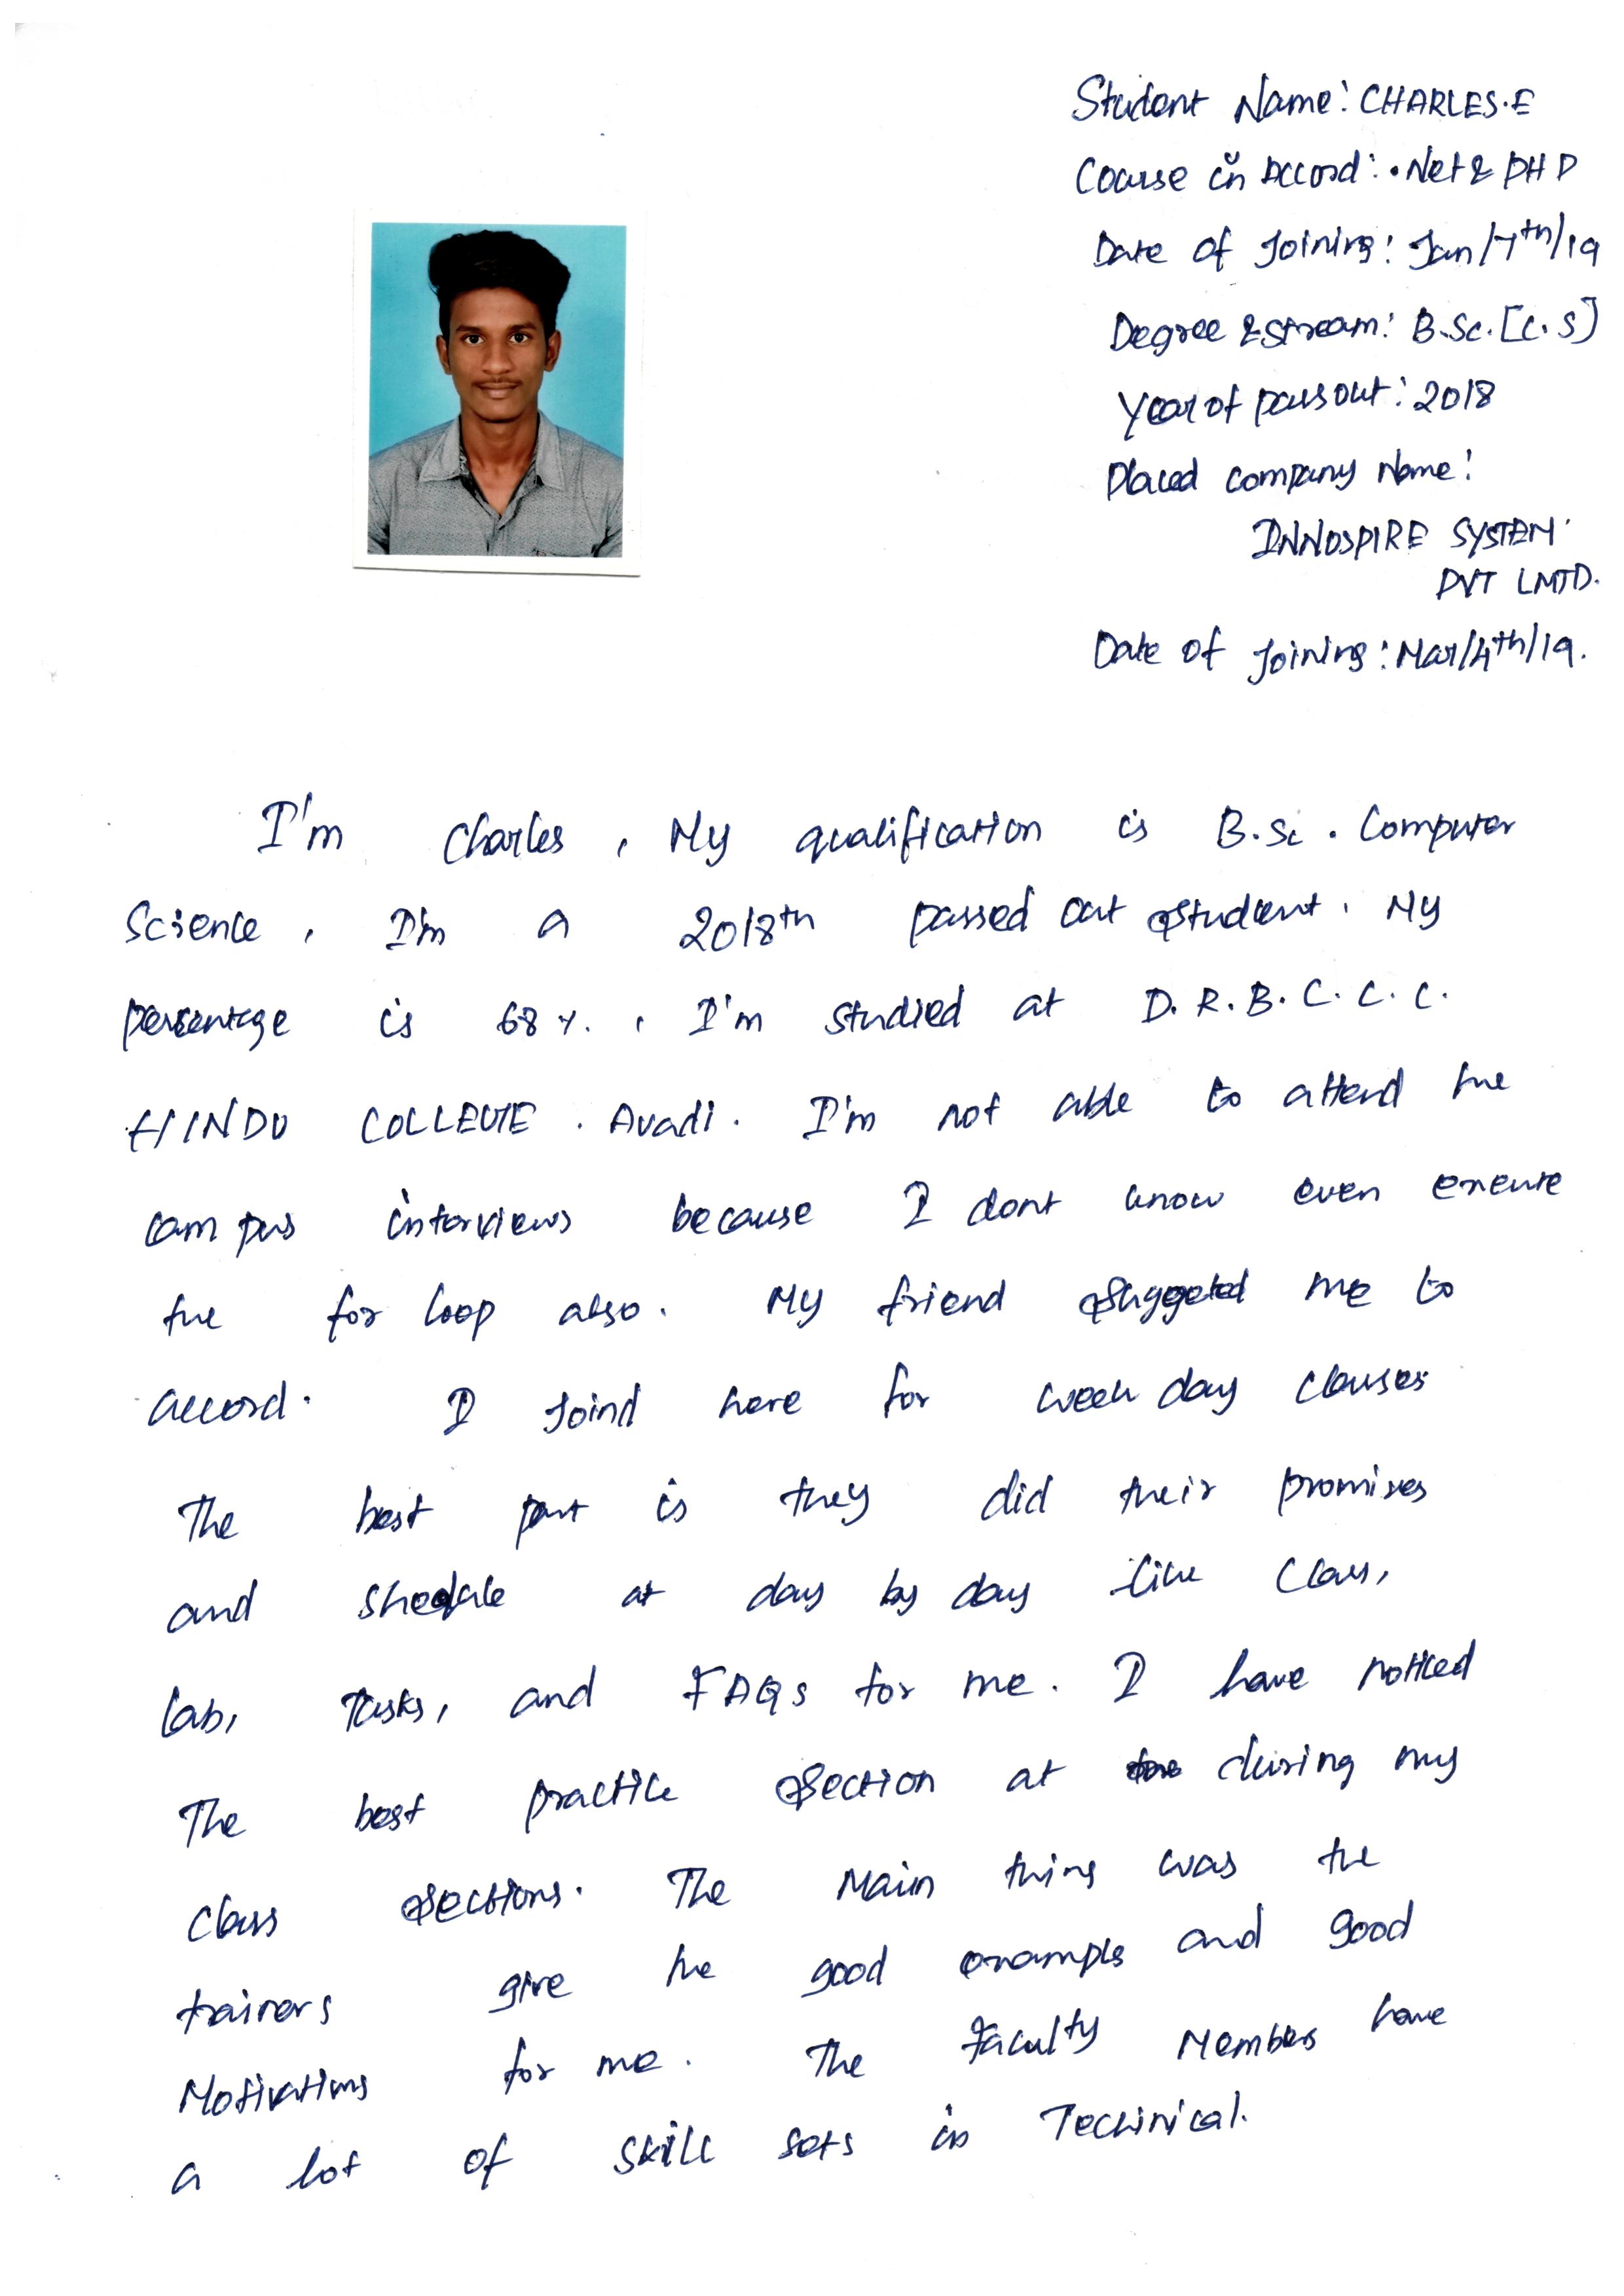 Student Name: CHARLES.E
Course in Accord: .Net & PHP
Date of Joining: Jan/7th/19
Degree & Stream: B.Sc.[C.S]
Year of passout: 2018
Placed company Name:
INNOSPIRE SYSTEM
PVT LMTD.
Date of Joining: Mar/4th/19.
I'm Charles, My qualification is B.Sc. Computer
Science, I'm a 2018th passed out student. My
persentage is 68%., I'm studied at D.R.B.C.C.C.
HINDU COLLEGE. Avadi. I'm not able to attend the
campus interviews because I dont know even execute
the for loop also. My friend suggeted me to
accord. I Joind here for week day classes
The best part is they did their promises
and shedule at day by day like Class,
lab, Tasks, and FAQs for me. I have noticed
The best practice section at during my
class sections. The Main thing was the
trainers give the good examples and good
Motivations for me. The Faculty Members have
a lot of skill sets in Techinical.